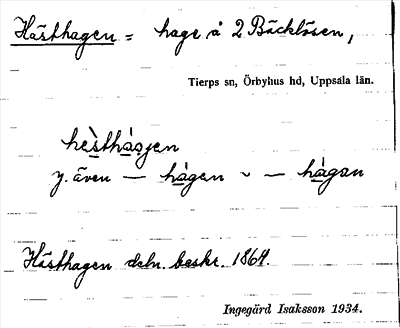 Hästhagen = hage å 2 Bäcklösen,
Tierps sn, Örbyhus hd, Uppsala län.
hèsthàgen
y. även — hàgen ~ — hàgan
Hästhagen deln. beskr. 1864.
Ingegärd Isaksson 1934.